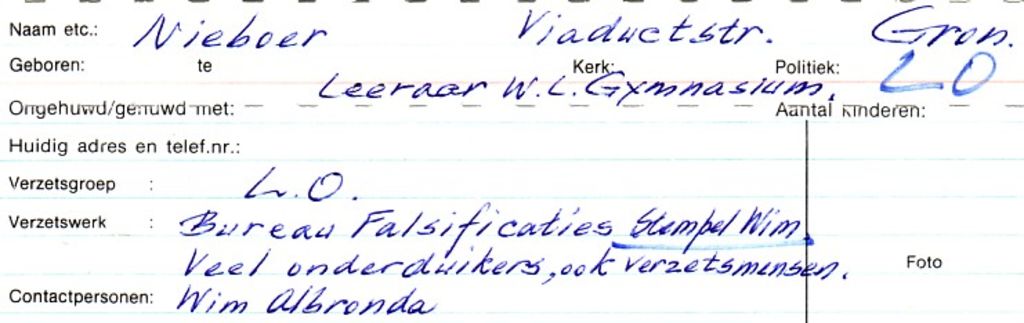 Naam etc.: Nieboer Viaductstr. Gron.
Geboren: te Kerk: Politiek: LO
Leeraar W.L. Gymnasium.
Ongehuwd/gehuwd met: Aantal kinderen:
Huidig adres en telef.nr.:
Verzetsgroep : L.O.
Verzetswerk : Bureau Falsificaties Stempel Wim
Veel onderduikers, ook verzetsmensen. Foto
Contactpersonen: Wim Albronda